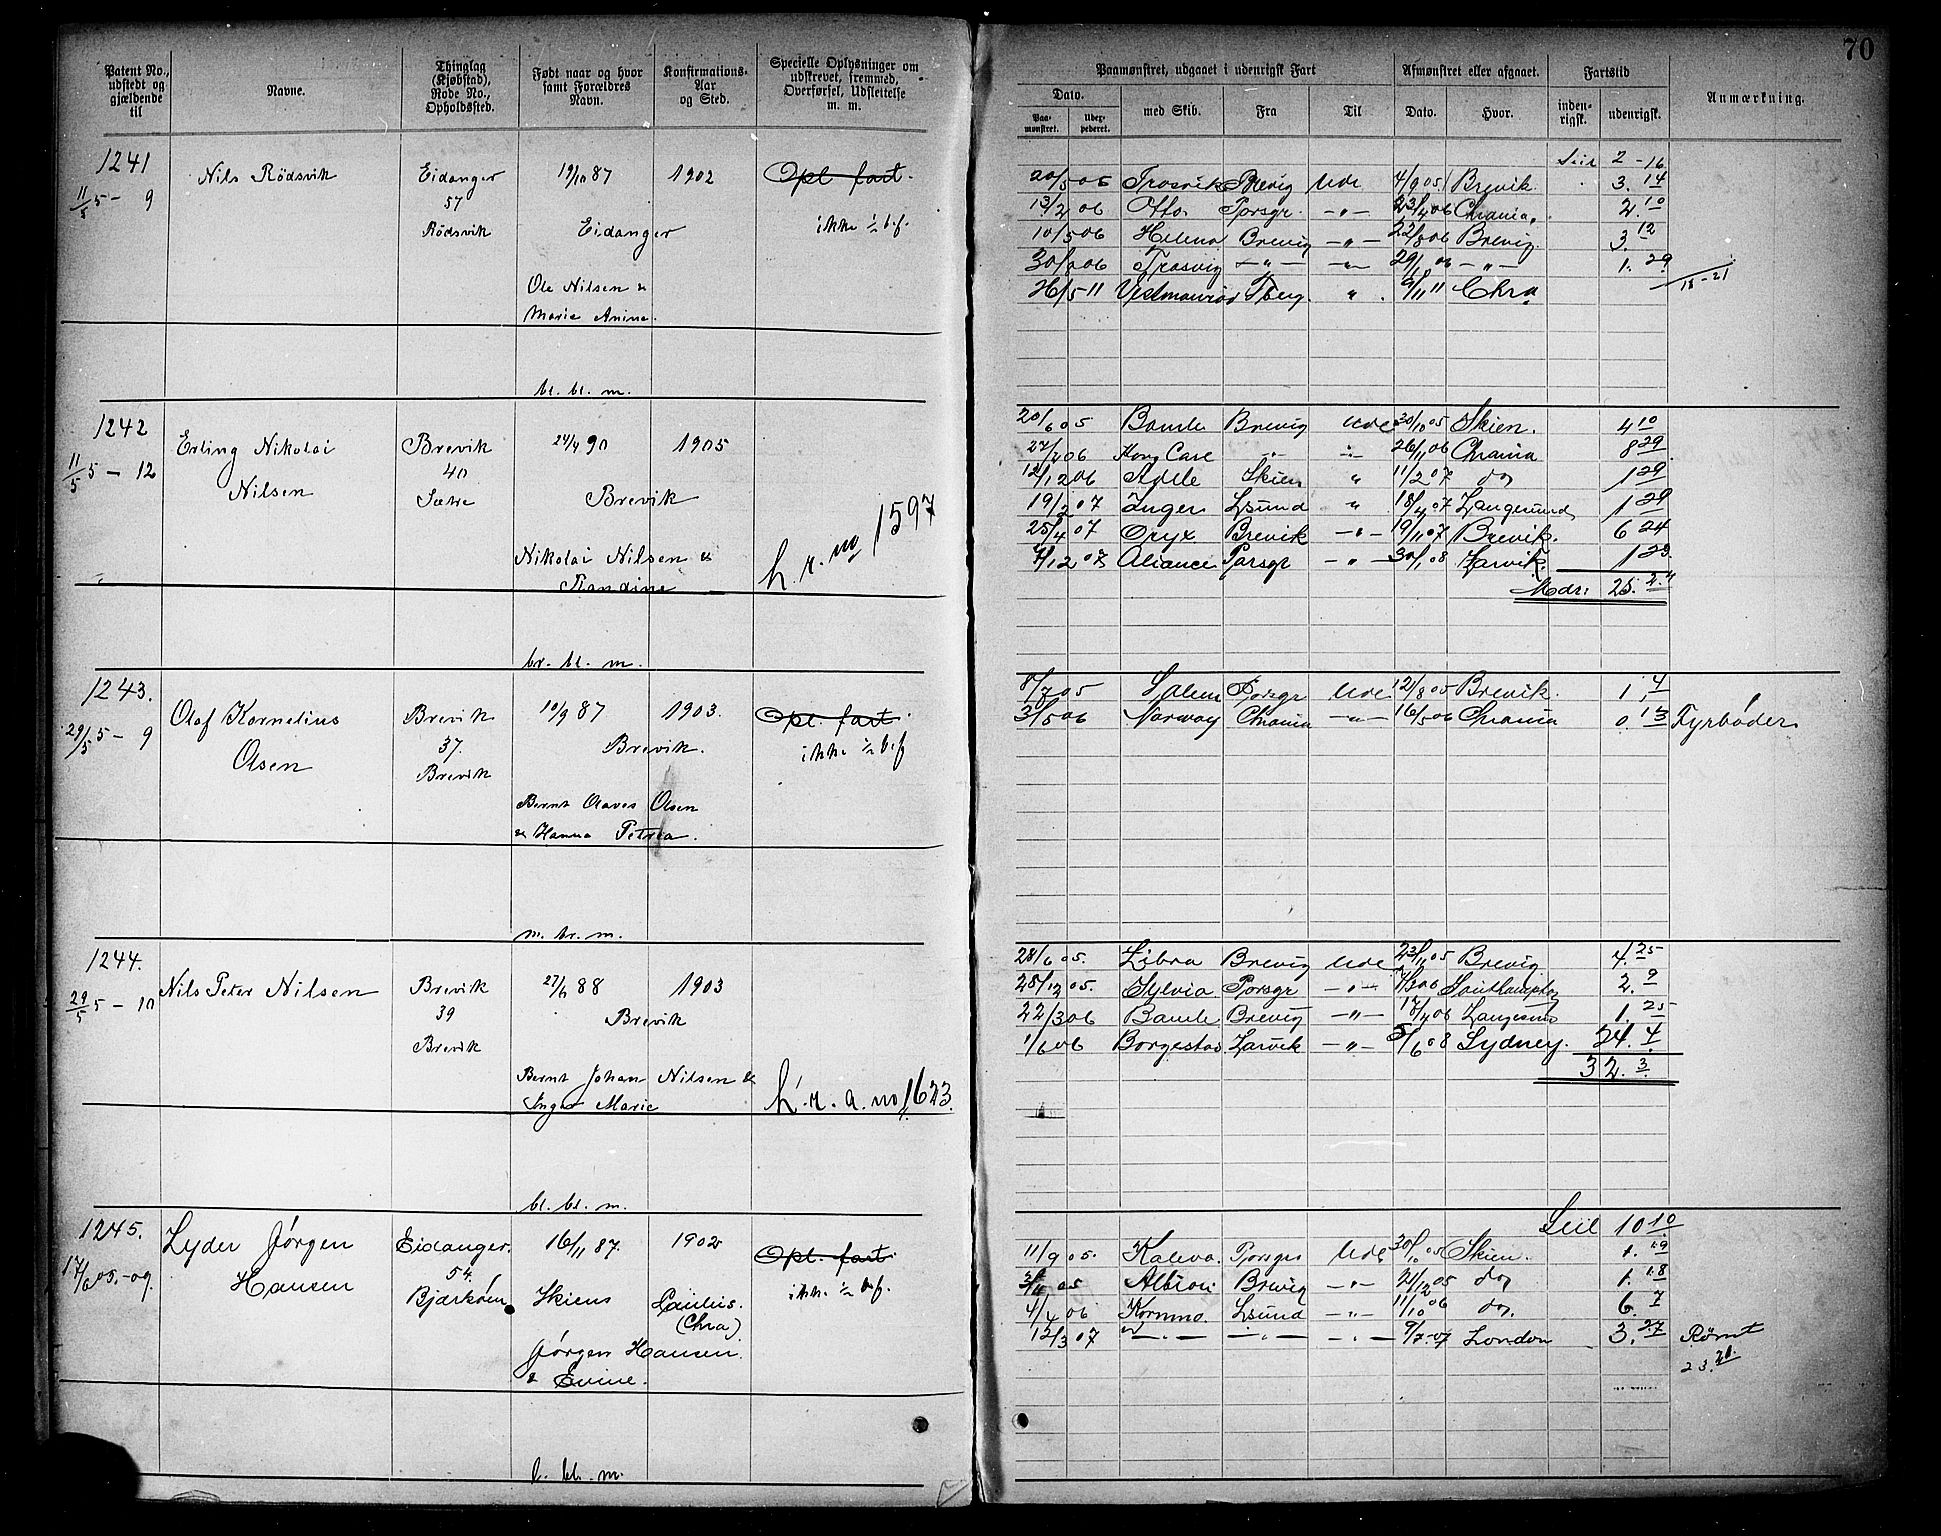 70
Patent No., udstedt og gjældende til
Navne.
Thinglag (Kjøbstad), Rode No., Opholdssted.
Født naar og hvor samt Forældres Navn.
Konfirmations- Aar og Sted.
Specielle Oplysninger om udskrevet, fremmed, Overførsel, Udslettelse m. m.
Paamønstret, udgaaet i udenrigsk Fart
Afmønstret eller afgaaet.
Fartstid
Anmærkning.
Dato.
med Skib.
Fra
Til
Dato.
Hvor.
inden- rigsk.
udenrigsk.
Paa- mønstret.
1241
11/5 5 - 9
Nils Rödsvik
Eidanger
57
Rödsvik
19/10 87
1902
Eidanger
Ole Nilsen &
Marie Anine.
bl. bl. m.
Opl. fart.
ikke 1/2 bef.
Seil 2 - 16
20/5 05 Trosvik Brevig Ude 4/9 05 Brevik 3. 14
13/2 06 Otto Porsgr. - " - 23/4 06 Chrania. 2. 10
10/5 06 Helena Brevig - " - 22/8 06 Brevig. 3. 12
30/8 06 Trosvig - " - - " - 29/10 06 - " - 1. 29
15 - 21
26/5 11 Tberg. " 9/11 11 Chra
1242
11/5 5 - 12
Erling Nikolai
Nilsen
Brevik
40
Sætre
24/4 90
1905
Brevik
Nikolai Nilsen &
Randine
br. bl. m.
h. r. no 1597
20/6 05 Bamle Brevig Ude 30/10 05 Skien. 4 10
27/2 06 Kong Care " " 26/11 06 Chrania 8 29
12/12 06 Adele Skien " 11/2 07 do 1 29
19/2 07 Inger Lsund " 18/4 07 Langesund 1 29
25/4 07 Oryx Brevik - " - 19/11 07 Brevik. 6 24
7/12 07 Aliance Porsgr - " - 30/1 08 Larvik. 1 23
Mdr: 25. 24
1243.
29/5 5 - 9
Olaf Kornelius
Olsen
Brevik
37.
Brevik
10/9 87
1903.
Brevik.
Bernt Olaves Olsen
& Hanna Petrea.
m. br. m.
Opl. fart.
ikke 1/2 bef
8/7 05 Salem Porsgr Ude 12/8 05 Brevik. 1. 4
3/5 06 Norway Chrania - " - 16/5 06 Chrania 0. 13 Fyrböder
1244.
29/5 5 - 10
Nils Peter Nilsen
Brevik
39
Brevik
1903
Brevik
Bernt Johan Nilsen &
Inger Marie
bl. bl. m.
h. r. a. no 1623.
28/6 05. Libra Brevig Ude 23/11 05 Brevig 4. 25
28/12 05. Sylvia Porsgr - " - Southampton 2. 9
22/3 06 Bamle Brevig - " - 17/4 06 Langesund 1. 25
1/6 06 Borgestad Larvik - " - 5/6 08 Sydney. 24. 4
32. 3
1245.
17/6 05.-09.
Lyder Jörgen
Hansen
Eidanger.
54.
Bjørköen
16/11 87.
1902
Skiens
Paulus.
(Chra).
Jörgen Hansen
& Evine.
l. bl. m.
Opl. fart.
ikke 1/2 bef.
Seil 10 10
11/9 05. Kaleva. Porsgr Ude 30/10 05 Skien. 1. 19
05 Albion Brevig - " - 21/12 05 do 1. 18
4/4 06 Kornmo. Lsund - " - 11/10 06 do. 6. 7
12/3 07 - " - - " - - " - 9/7 07 London 3. 27 Römt
23. 21.